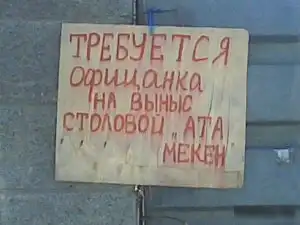 ТРЕБУЕТСЯ
Официанка
НА ВЫНЫС
СТОЛОВОЙ „АТА
МЕКЕН"